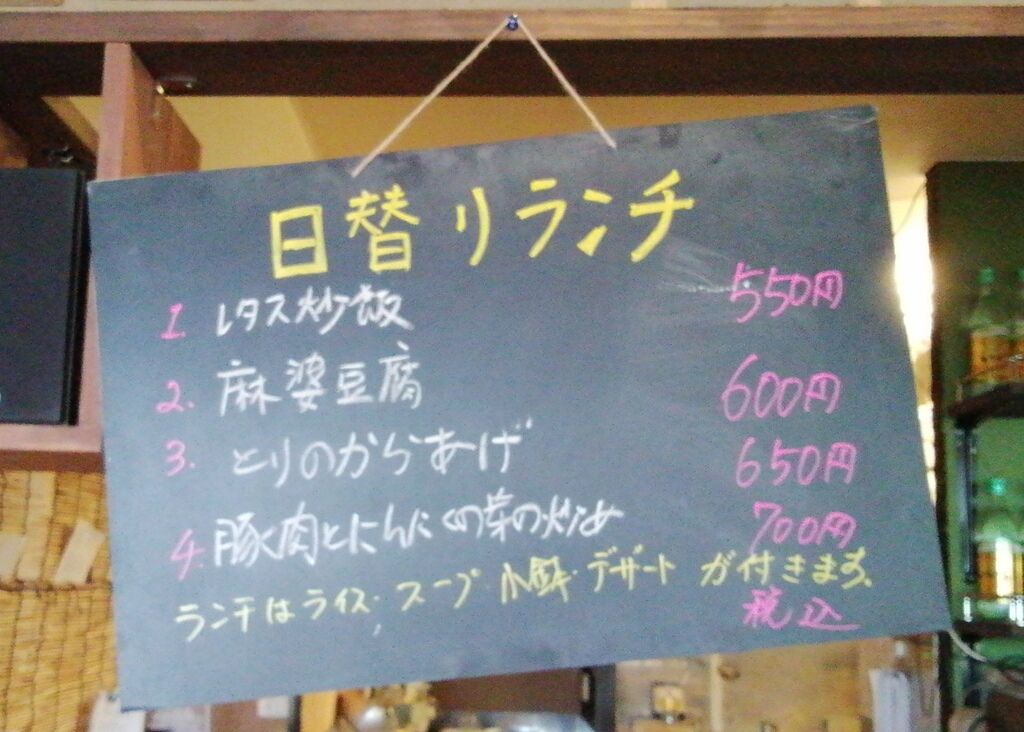 日替りランチ
1. レタス炒飯 550円
2. 麻婆豆腐 600円
3. とりのからあげ 650円
4. 豚肉とにんにくの芽の炒め 700円
ランチはライス・スープ・小鉢・デザートが付きます。
税込